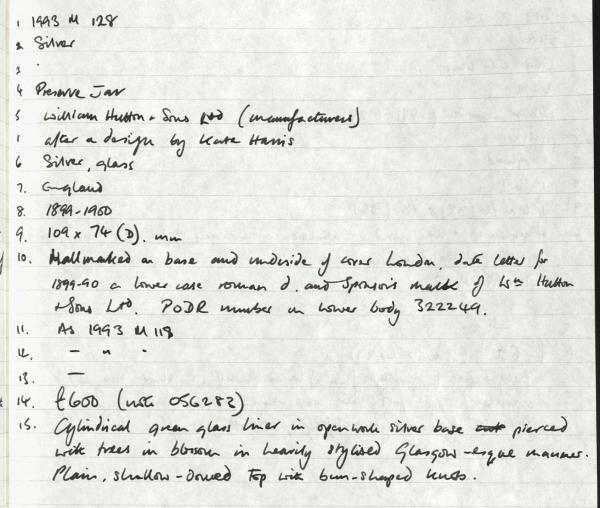 1 1993 M 128
2 Silver
3 .
4 Preserve Jar
5 William Hutton & Sons Ltd (manufacturers)
1 after a design by Kate Harris
6 Silver, glass
7. England
8. 1899-1900
9. 109 x 74 (D). mm
10. Hallmarked on base and underside of cover London, date letter for
1899-90 a lower case roman d. and Sponsor's mark of Wm Hutton
& Sons Ltd. PODR number on lower body 322249.
11. As 1993 M 118
12. — " .
13. —
14. £600 (with 056282)
15. Cylindrical green glass liner in openwork silver base pierced
with trees in blossom in heavily stylised Glasgow-esque manner.
Plain, shallow-domed top with bun-shaped knob.